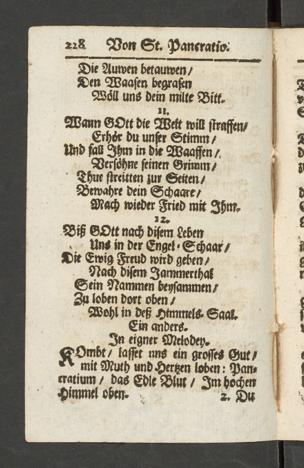 228 Von St. Pancratio.
Die Auwen betauwen/
Den Waasen begrasen
Wöll uns dein milte Bitt.
11.
Wann GOtt die Welt will straffen/
Erhör du unser Stimm/
Und fall Ihm in die Waaffen/
Versöhne seinen Grimm/
Thue streitten zur Seiten/
Bewahre dein Schaare/
Mach wieder Fried mit Ihm.
12.
Biß GOtt nach disem Leben
Uns in der Engel-Schaar/
Die Ewig Freud wird geben/
Nach disem Jammerthal
Sein Nammen beysammen/
Zu loben dort oben/
Wohl in deß Himmels-Saal.
Ein anders.
In eigner Melodey.
KOmbt/ lasset uns ein grosses Gut/
mit Muth und Hertzen loben: Pan-
cratium/ das Edle Blut/ Im hochen
Himmel oben.
2. Du